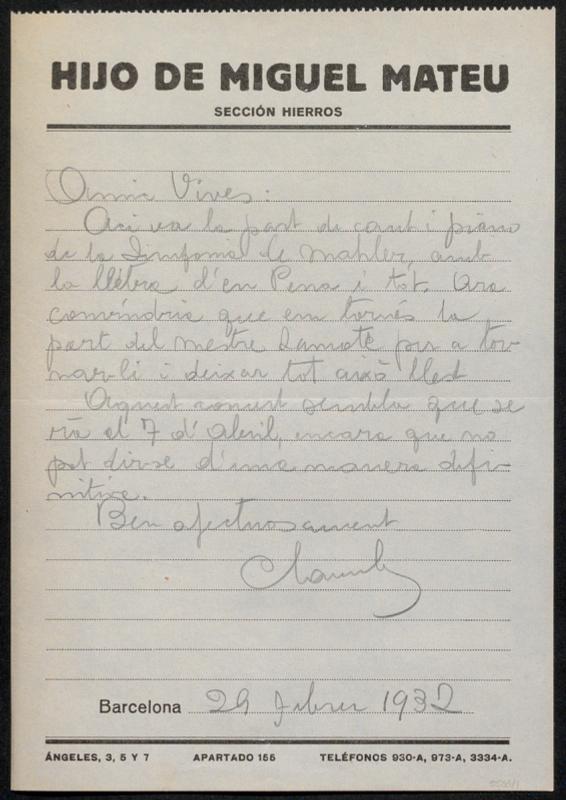 HIJO DE MIGUEL MATEU
SECCIÓN HIERROS
Amic Vives:
Aci va la part de cant i piano
de la Simfonia de Mahler, amb
la lletra d'en Pena i tot. Ara
convindria que em tornés la
part del mestre Lamote per a tor-
nar-li i deixar tot això llest
Aquest concert sembla que se
ria el 7 d'Abril, encara que no
pot dir-se d'una manera defi-
nitiva.
Ben afectuosament
Barcelona 29 febrer 1932
ÁNGELES, 3, 5 Y 7 APARTADO 155 TELÉFONOS 930-A, 973-A, 3334-A.